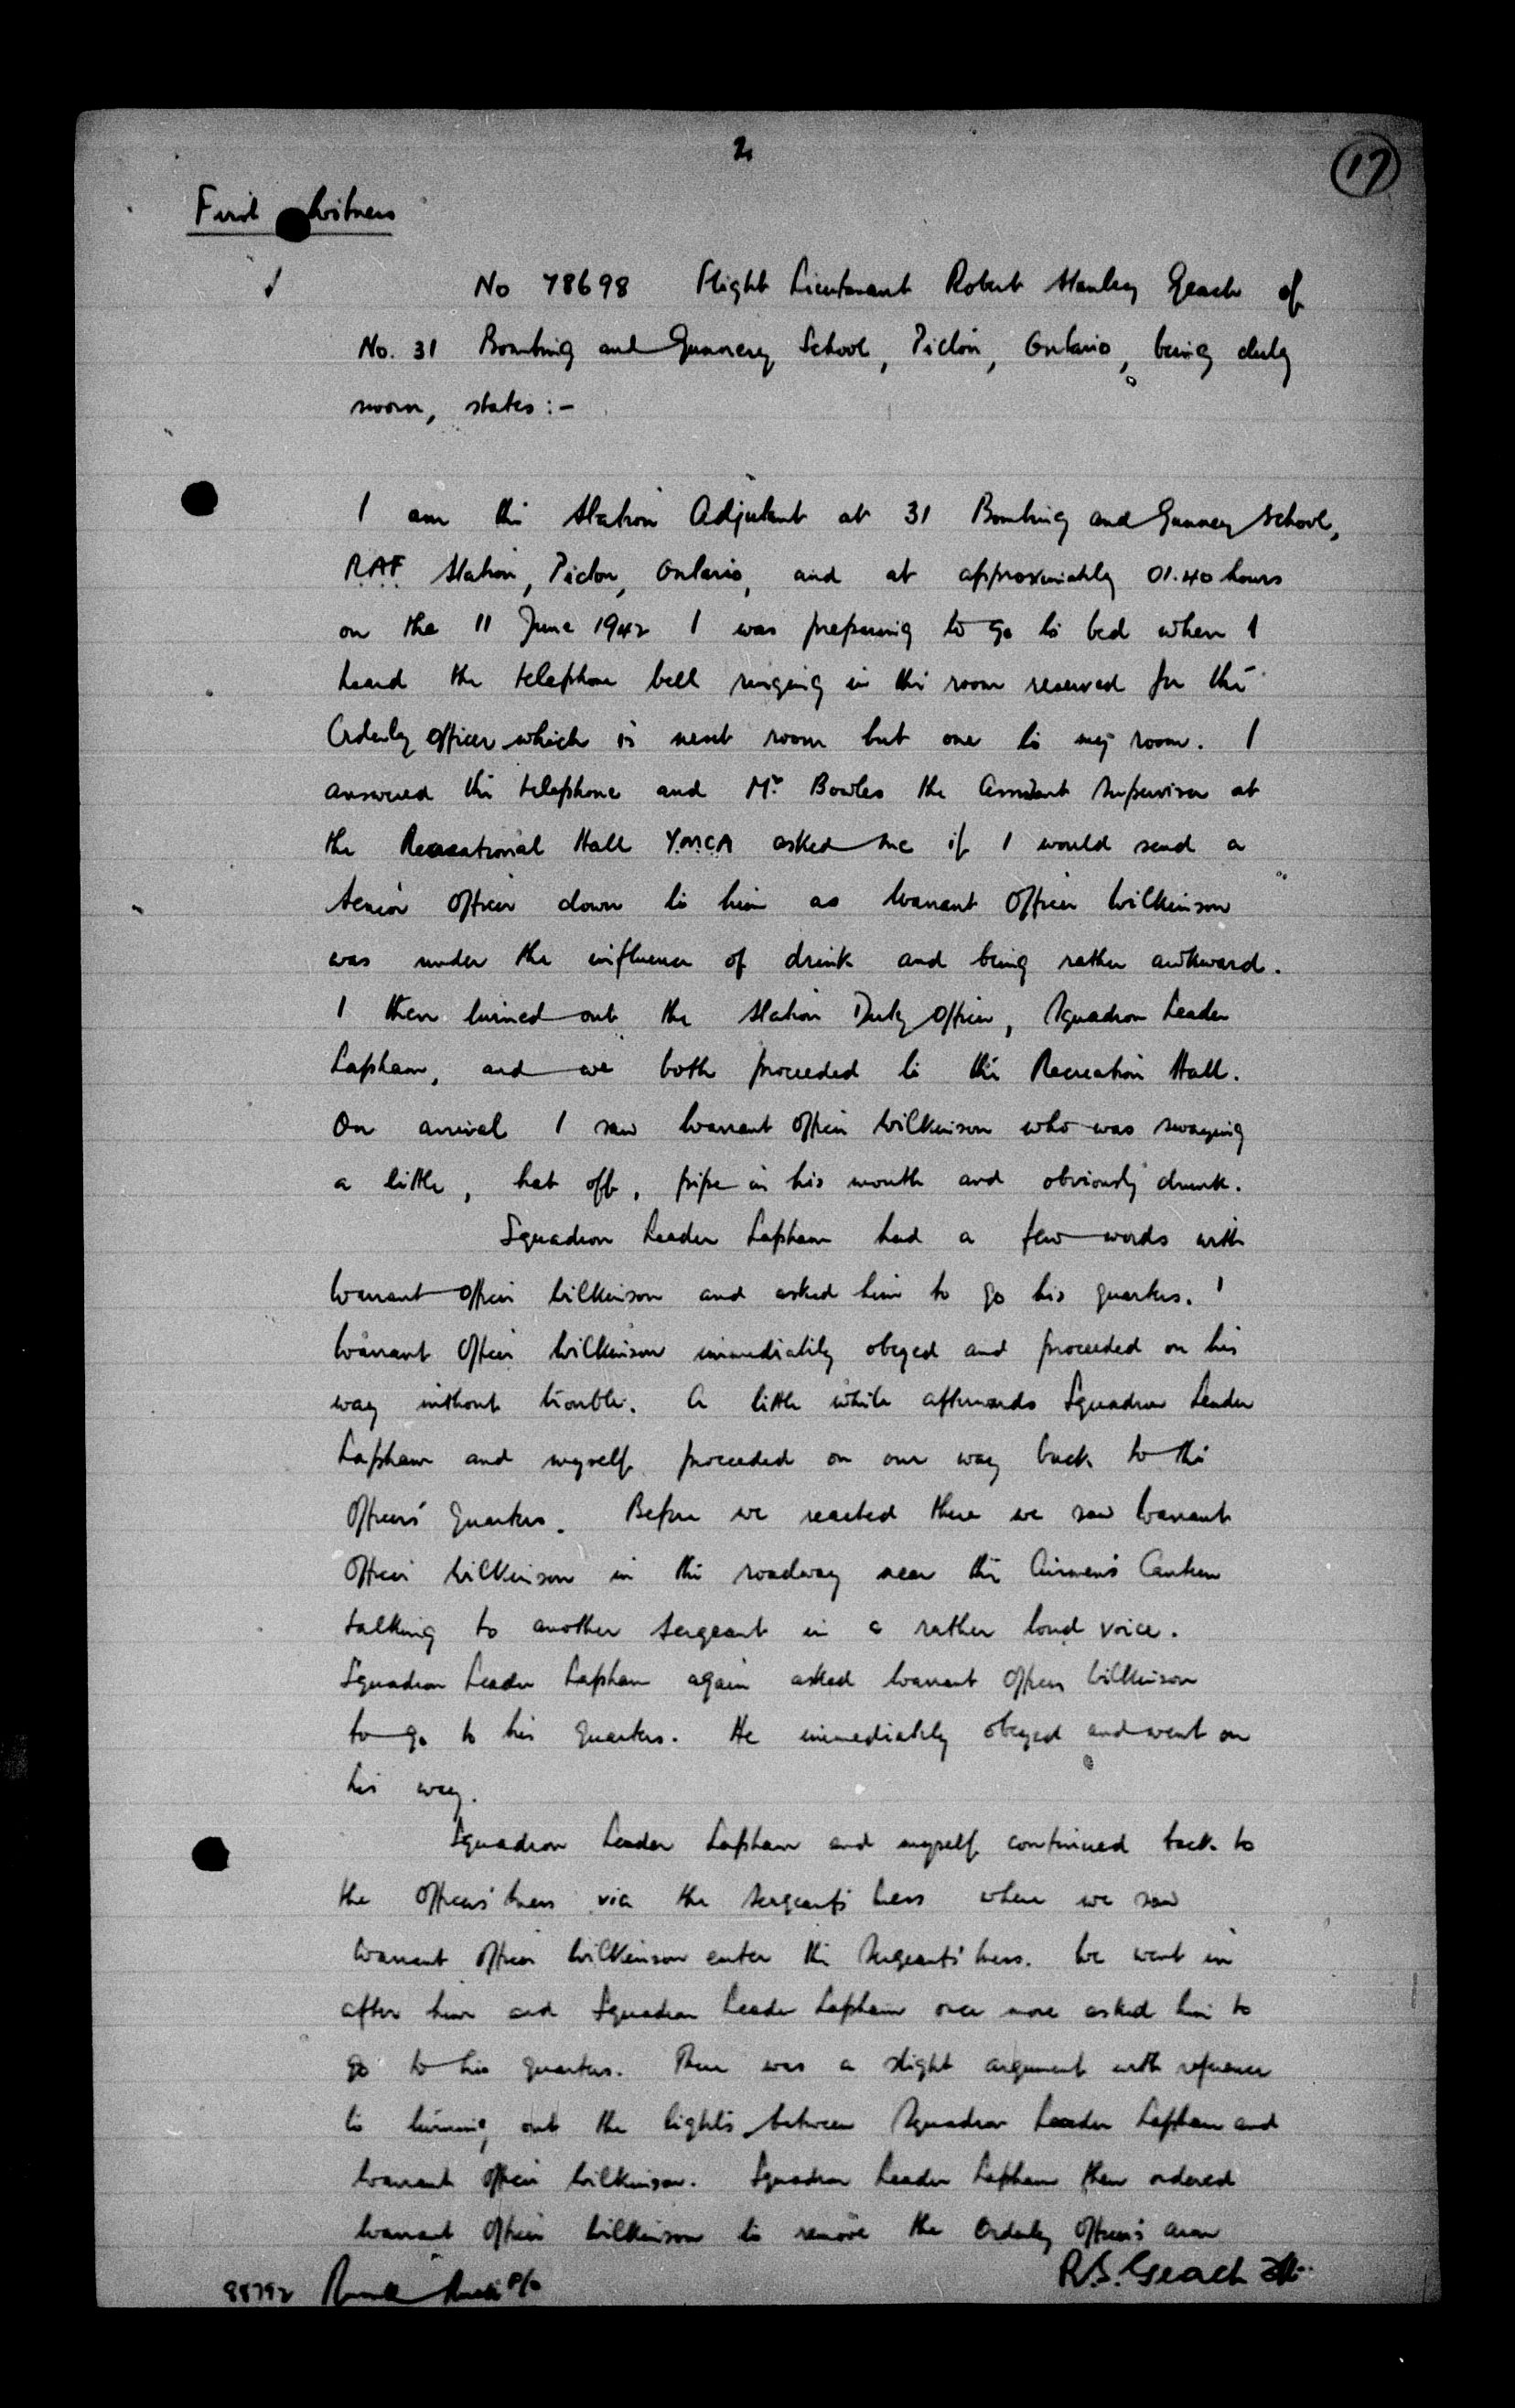 2
17
First Witness
No 78698 Flight Lieutenant Robert Stanley Geach of
No. 31 Bombing and Gunnery School, Picton, Ontario, being duly
sworn, states :-
I am the Station Adjutant at 31 Bombing and Gunnery School,
R.A.F. Station, Picton, Ontario, and at approximately 01.40 hours
on the 11 June 1942 I was preparing to go to bed when I
heard the telephone bell ringing in the room reserved for the
Orderly Officer which is next room but one to my room. I
answered the telephone and Mr Bowles the Assistant Supervisor at
the Recreational Hall Y.M.C.A asked me if I would send a
Senior Officer down to him as Warrant Officer Wilkinson
was under the influence of drink and being rather awkward.
I then turned out the Station Duty Officer, Squadron Leader
Lapham, and we both proceeded to the Recreation Hall.
On arrival I saw Warrant Officer Wilkinson who was swaying
a little, hat off, pipe in his mouth and obviously drunk.
Squadron Leader Lapham had a few words with
Warrant Officer Wilkinson and asked him to go his quarters.
Warrant Officer Wilkinson immediately obeyed and proceeded on his
way without trouble. A little while afterwards Squadron Leader
Lapham and myself proceeded on our way back to the
Officers' Quarters. Before we reached there we saw Warrant
Officer Wilkinson in the roadway near the Airmen's Canteen
talking to another Sergeant in a rather loud voice.
Squadron Leader Lapham again asked Warrant Officer Wilkinson
to go to his quarters. He immediately obeyed and went on
his way.
Squadron Leader Lapham and myself continued back to
the Officers' Mess via the Sergeants' Mess where we saw
Warrant Officer Wilkinson enter the Sergeants' Mess. We went in
after him and Squadron Leader Lapham once more asked him to
go to his quarters. There was a slight argument with reference
to turning out the lights between Squadron Leader Lapham and
Warrant Officer Wilkinson. Squadron Leader Lapham then ordered
Warrant Officer Wilkinson to remove the Orderly Officer's arm
R.S. Geach
88792 P/O